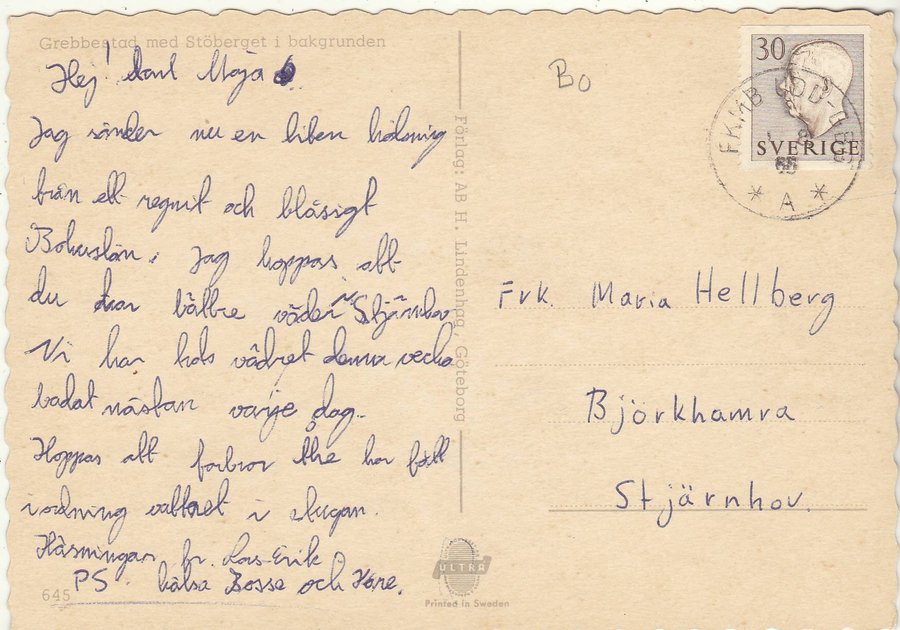 Grebbestad med Stöberget i bakgrunden
Hej! tant Maja
Jag sänder nu en liten hälsning
från ett regnit och blåsigt
Bohuslän. Jag hoppas att
du har bättre väder i Stjärnhov
Vi har trots vädret denna vecka
badat nästan varje dag.
Hoppas att farbror Ture har fått
iordning vattnet i stugan.
Hälsningar fr. Lars-Erik
PS. hälsa Bosse och Kåre.
645
Förlag: AB H. Lindenhag, Göteborg
ULTRA
Printed in Sweden
Bo
30
SVERIGE
A
Frk. Maria Hellberg
Björkhamra
Stjärnhov.